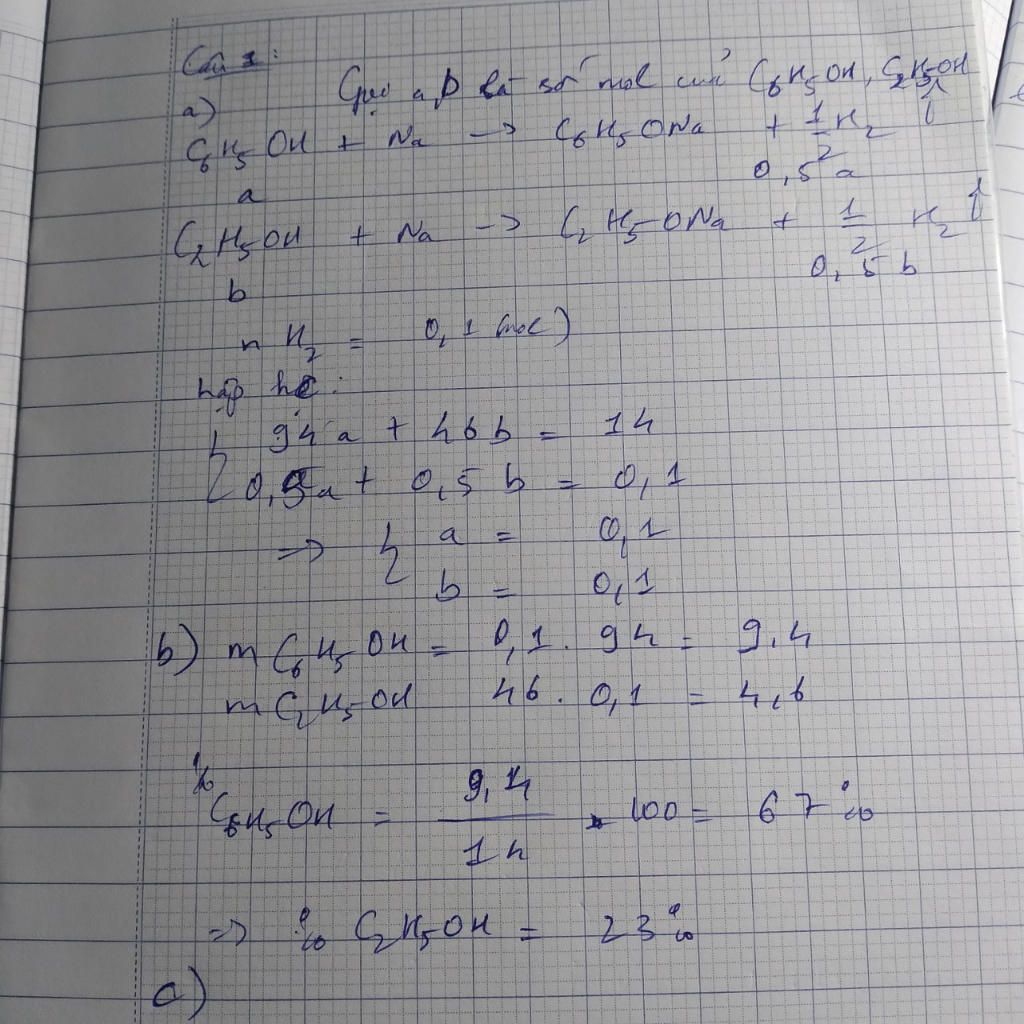 Câu 1:
a) Gọi a, b là số mol của C₆H₅OH, C₂H₅OH
C₆H₅OH + Na → C₆H₅ONa + 1/2 H₂ ↑
a 0,5a
C₂H₅OH + Na → C₂H₅ONa + 1/2 H₂ ↑
b 0,5b
n H₂ = 0,1 (mol)
hệ:
{ 94a + 46b = 14
0,5a + 0,5b = 0,1
=> { a = 0,1
b = 0,1
b) m C₆H₅OH = 0,1 . 94 = 9,4
m C₂H₅OH 46 . 0,1 = 4,6
% C₆H₅OH = 9,4/14 . 100 = 67%
=> % C₂H₅OH = 23%
c)